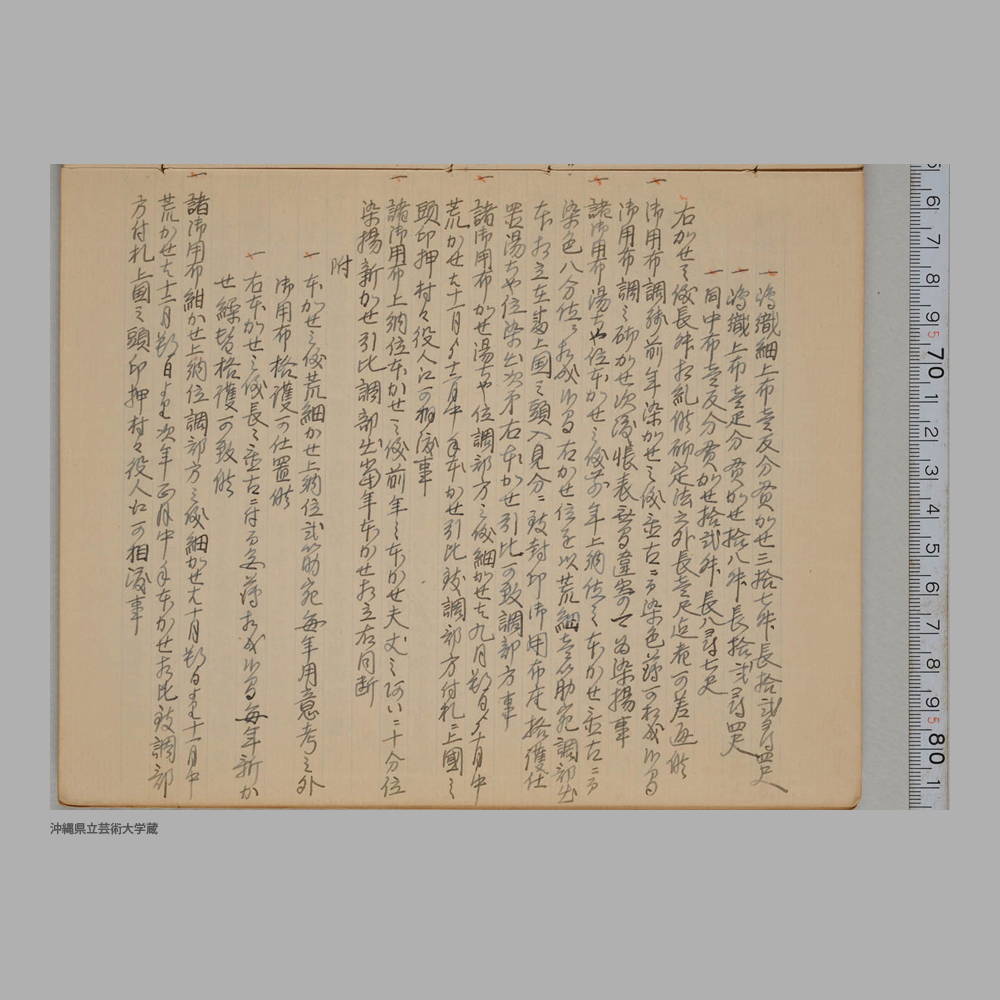 一嶋織細上布壱反分貫かせ三拾七舛長拾弐尋四尺
一嶋織上布壱疋分貫かせ拾八舛長拾弐尋四尺
一同中布壱反分貫かせ拾弐舛長八尋七尺
右かせ之儀長舛相乱候砌定法之外長壱尺迄者可差通候
一御用布調跡前年染かせ之儀
御用布調之砌かせ次渡帳表
染揚事
一諸御用布湯ちや位本かせ之儀前年上納位之本かせ
染色八分位ニ相成候間右かせ位を以荒細壱筋宛調部出
本相立在番上国之頭入見分ニ致封印御用布座格護仕
置湯ちや位染出次第右本かせ引比可致調部方事
一諸御用布かせ湯ちや位調部方之儀細かせハ九月朔日十月中
荒かせハ十一月十二月中本かせ引比致調部方付札ニ上國之
頭印押村々役人江可相渡事
一諸御用布上納位本かせ之儀前年之本かせ
二十分位
染揚新かせ引比調部出当年本かせ相立右同断
附
一本かせ之儀荒細かせ上納位弐筋宛毎年用意考之外
御用布格護可仕置候
一右本かせ之儀長々
相成候間毎年新か
せ繰替格護可致候
一諸御用布紺かせ上納位調部方之儀細かせハ十月朔日十一月中
荒かせハ十二月朔日次年正月中本かせ相比致調部
方付札上国之頭印押村々役人江可相渡事
6 7 8 9 70 1 2 3 4 5 6 7 8 9 80 1
沖縄県立芸術大学蔵